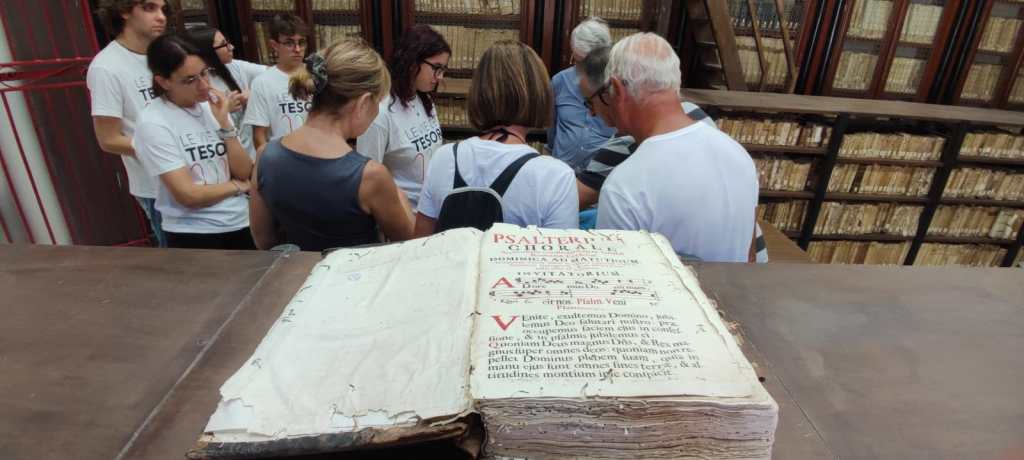 LE VIE
TESO
LE VIE
TESO
LE VIE
TESOR
PSALTER
CHORALE
DOMINICA AD MATUTINUM
INVITATORIUM
Psalm. Veni
VEnite, exultemus Domino, jubi-
lemus Deo salutari nostro: præ
occupemus faciem ejus in confes
sione, & in psalmis jubilemus ei
Quoniam Deus magnus Dñs, & Rex ma
gnus super omnes deos: quoniam non re-
pellet Dominus plebem suam, quia in
manu ejus sunt omnes fines terræ, & al
titudines montium ipse conspicit.